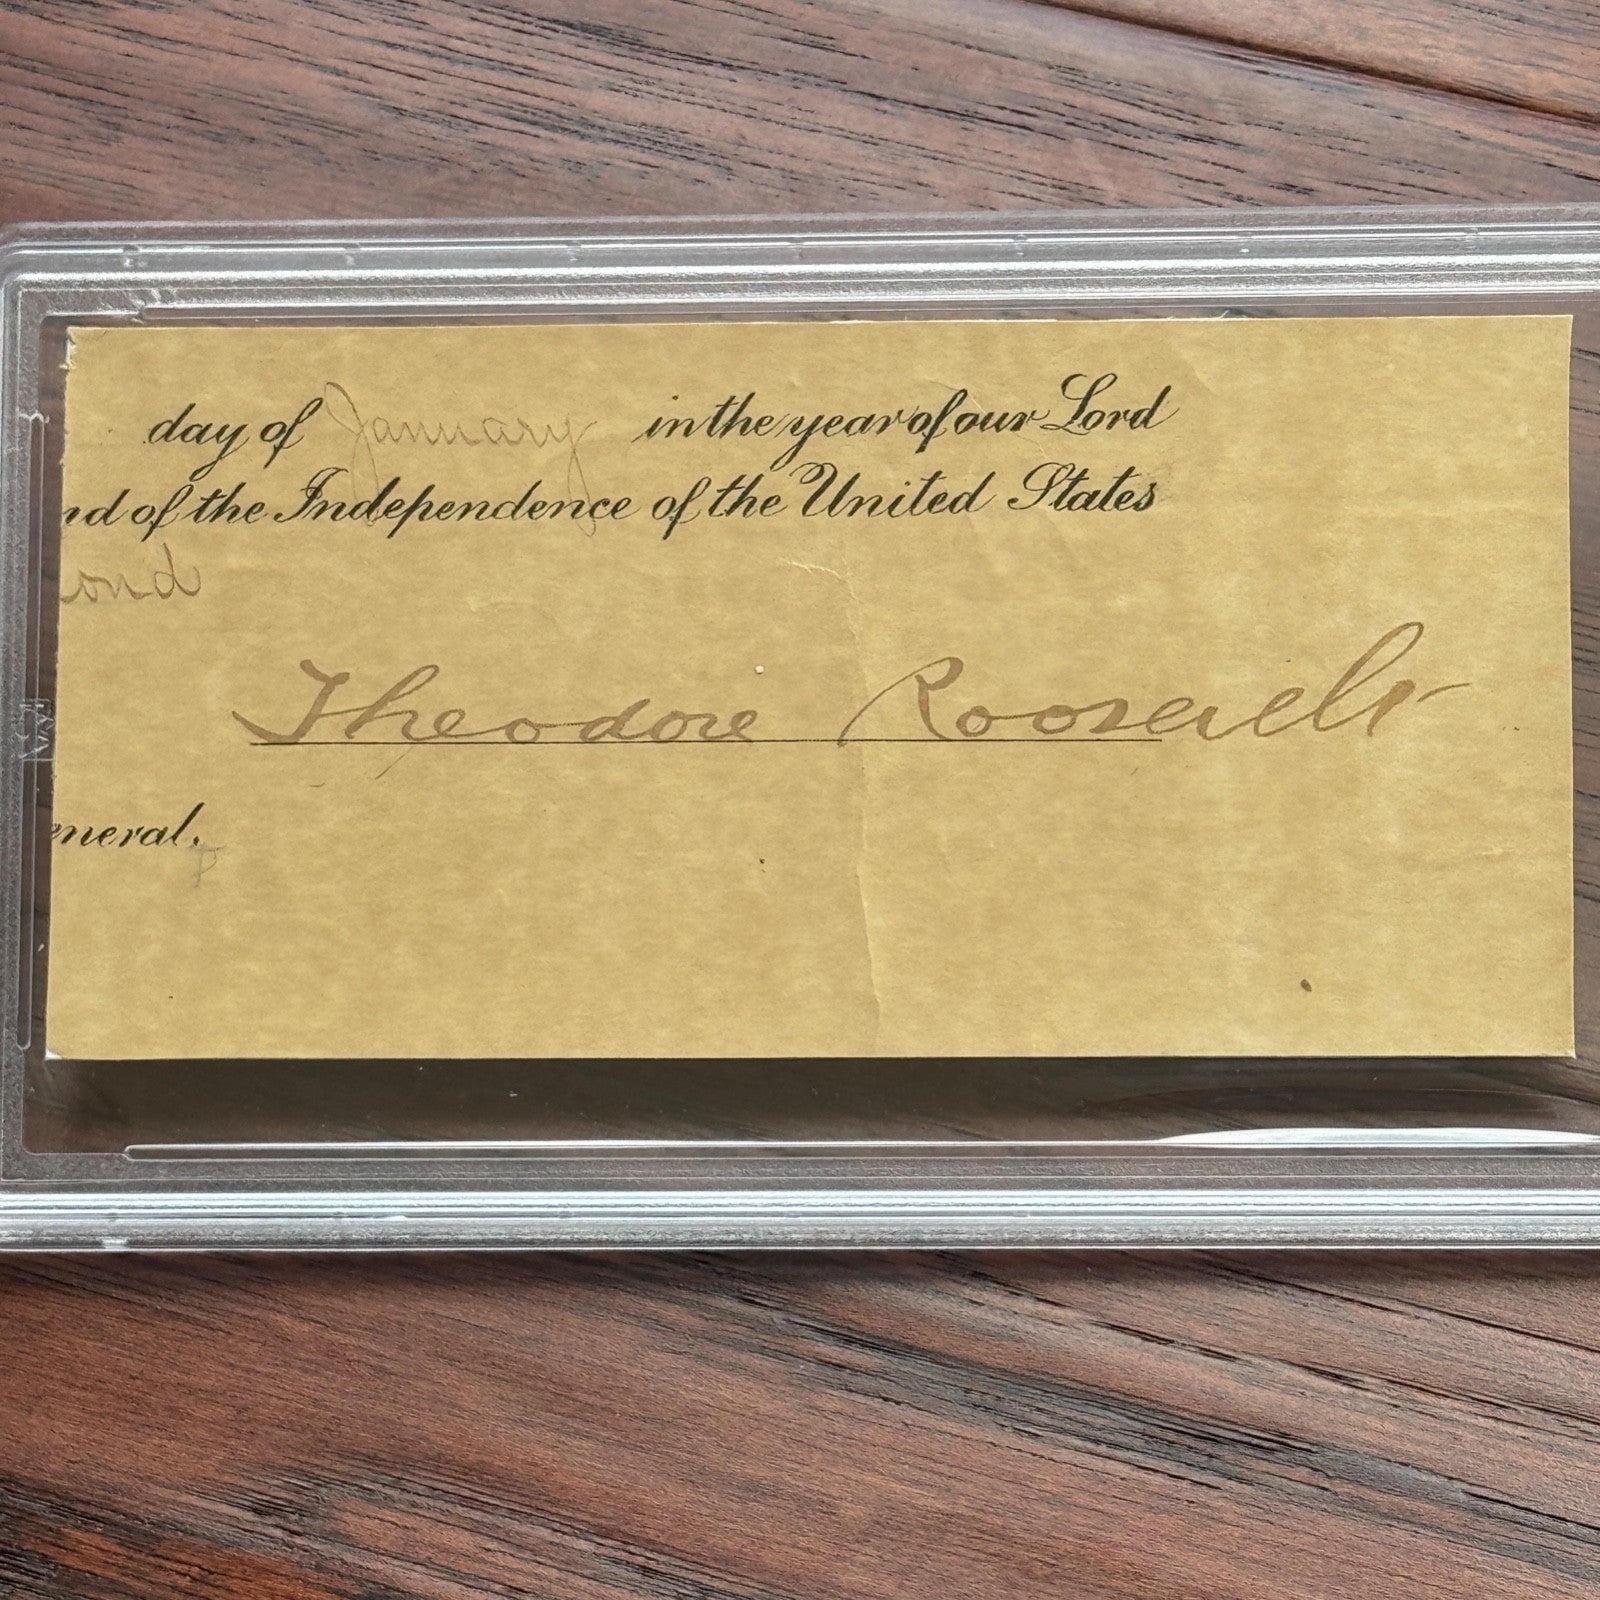 day of January in the year of our Lord
nd of the Independence of the United States
ond
Theodore Roosevelt
eneral.